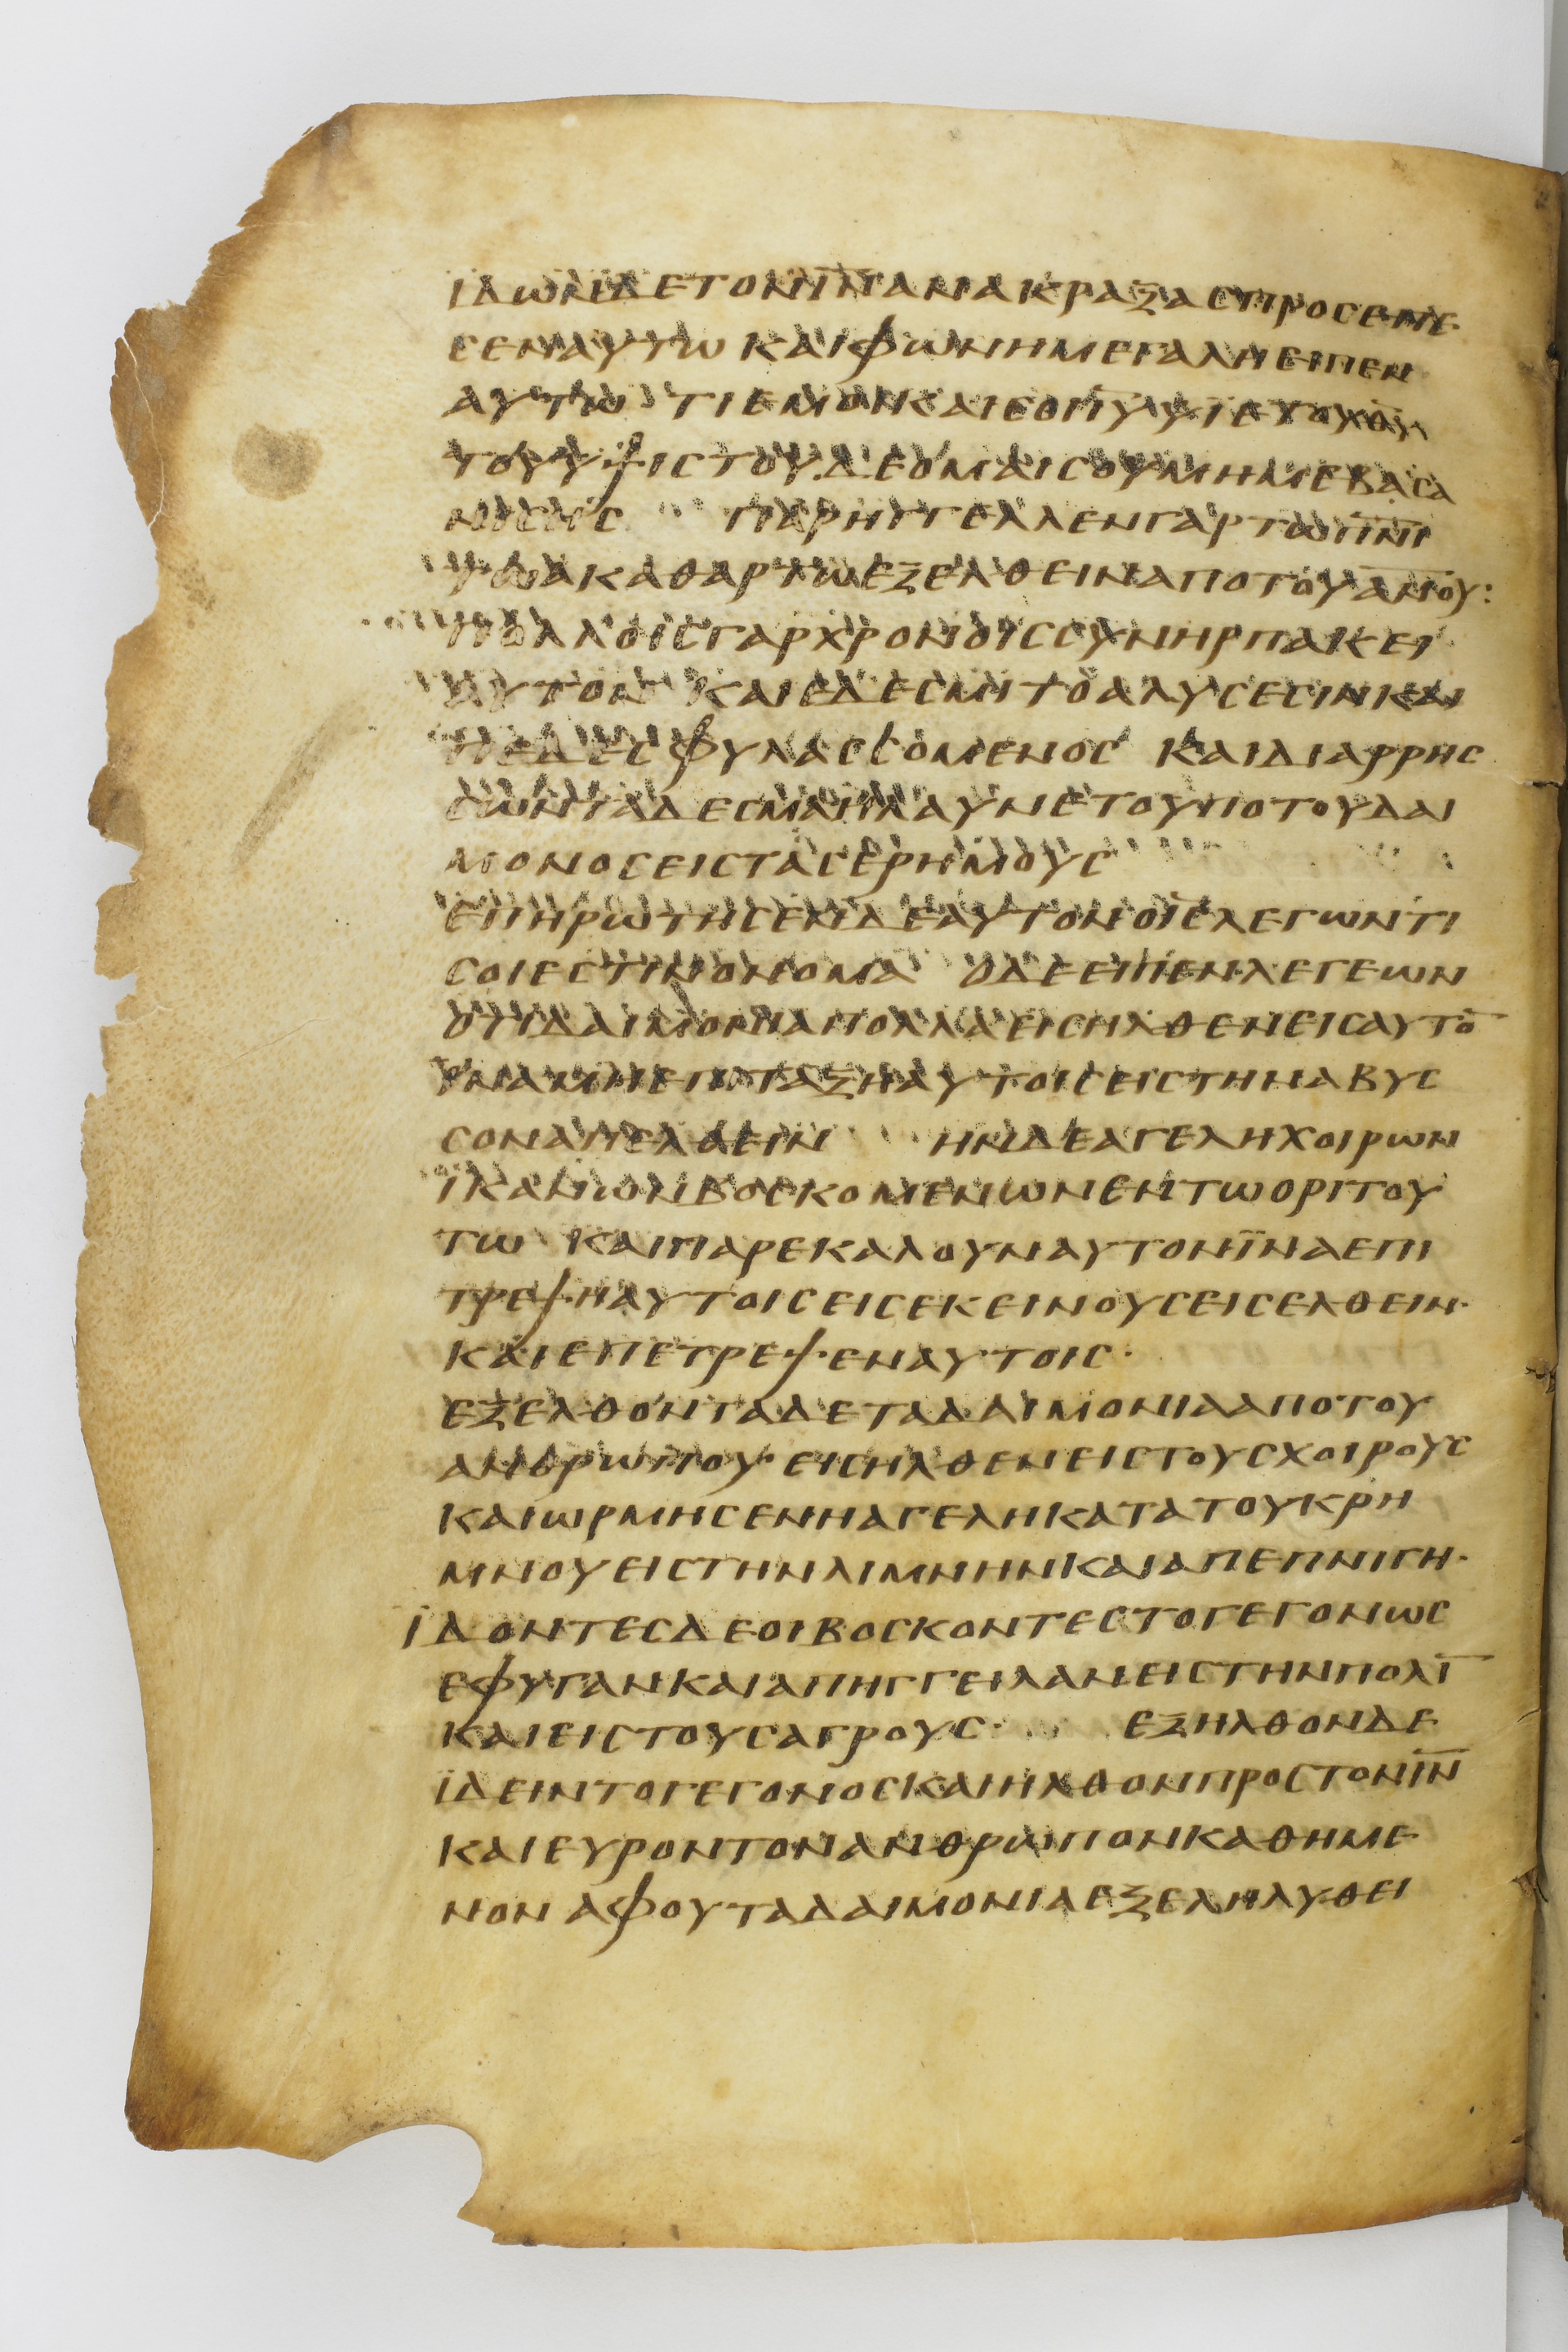 ΙΔΩΝΔΕΤΟΝΙ̅Ν̅ΑΝΑΚΡΑΞΑϹΠΡΟϹΕΠΕ
ϹΕΝΑΥΤΩ ΚΑΙΦΩΝΗΜΕΓΑΛΗΕΙΠΕΝ
ΑΥΤΩ ΤΙΕΜΟΙΚΑΙϹΟΙΙ̅Υ̅ΥΙΕΤΟΥΘ̅Υ̅
ΤΟΥΥΨΙϹΤΟΥ ΔΕΟΜΑΙϹΟΥΜΗΜΕΒΑϹΑ
ΝΙϹΗϹ ΠΑΡΗΓΓΕΛΛΕΝΓΑΡΤΩΠ̅Ν̅Ι̅
ΤΩΑΚΑΘΑΡΤΩΕΞΕΛΘΕΙΝΑΠΟΤΟΥΑ̅Ν̅Ο̅Υ̅:
ΠΟΛΛΟΙϹΓΑΡΧΡΟΝΟΙϹϹΥΝΗΡΠΑΚΕΙ
ΑΥΤΟΝ ΚΑΙΕΔΕϹΜΙΤΟΑΛΥϹΕϹΙΝΚΑΙ
ΠΕΔΕϹΦΥΛΑϹϹΟΜΕΝΟϹ ΚΑΙΔΙΑΡΡΗϹ
ϹΩΝΤΑΔΕϹΜΑΗΛΑΥΝΕΤΟΥΠΟΤΟΥΔΑΙ
ΜΟΝΟϹΕΙϹΤΑϹΕΡΗΜΟΥϹ
ΕΠΗΡΩΤΗϹΕΝΔΕΑΥΤΟΝΟΙ̅Ϲ̅ΛΕΓΩΝΤΙ
ϹΟΙΕϹΤΙΝΟΝΟΜΑ ΟΔΕΕΙΠΕΝΛΕΓΕΩΝ
ΟΤΙΔΑΙΜΟΝΙΑΠΟΛΛΑΕΙϹΗΛΘΕΝΕΙϹΑΥΤΟ̅
ΙΝΑΜΗΕΠΙΤΑΞΗΑΥΤΟΙϹΕΙϹΤΗΝΑΒΥϹ
ϹΟΝΑΠΕΛΘΕΙΝ ΗΝΔΕΑΓΕΛΗΧΟΙΡΩΝ
ΪΚΑΝΩΝΒΟϹΚΟΜΕΝΩΝΕΝΤΩΟΡΙΤΟΥ
ΤΩ ΚΑΙΠΑΡΕΚΑΛΟΥΝΑΥΤΟΝΪΝΑΕΠΙ
ΤΡΕΨΗΑΥΤΟΙϹΕΙϹΕΚΕΙΝΟΥϹΕΙϹΕΛΘΕΙΝ·
ΚΑΙΕΠΕΤΡΕΨΕΝΑΥΤΟΙϹ·
ΕΞΕΛΘΟΝΤΑΔΕΤΑΔΑΙΜΟΝΙΑΑΠΟΤΟΥ
ΑΝΘΡΩΠΟΥ· ΕΙϹΗΛΘΕΝΕΙϹΤΟΥϹΧΟΙΡΟΥϹ
ΚΑΙΩΡΜΗϹΕΝΗΑΓΕΛΗΚΑΤΑΤΟΥΚΡΗ
ΜΝΟΥΕΙϹΤΗΝΛΙΜΝΗΝΚΑΙΑΠΕΠΝΙΓΗ·
ΪΔΟΝΤΕϹΔΕΟΙΒΟϹΚΟΝΤΕϹΤΟΓΕΓΟΝΩϹ
ΕΦΥΓΑΝΚΑΙΑΠΗΓΓΕΙΛΑΝΕΙϹΤΗΝΠΟΛΙ̅
ΚΑΙΕΙϹΤΟΥϹΑΓΡΟΥϹ· ΕΞΗΛΘΟΝΔΕ
ΙΔΕΙΝΤΟΓΕΓΟΝΟϹΚΑΙΗΛΘΟΝΠΡΟϹΤΟΝΙ̅Ν̅
ΚΑΙΕΥΡΟΝΤΟΝΑΝΘΡΩΠΟΝΚΑΘΗΜΕ
ΝΟΝΑΦΟΥΤΑΔΑΙΜΟΝΙΑΕΞΕΛΗΛΥΘΕΙ